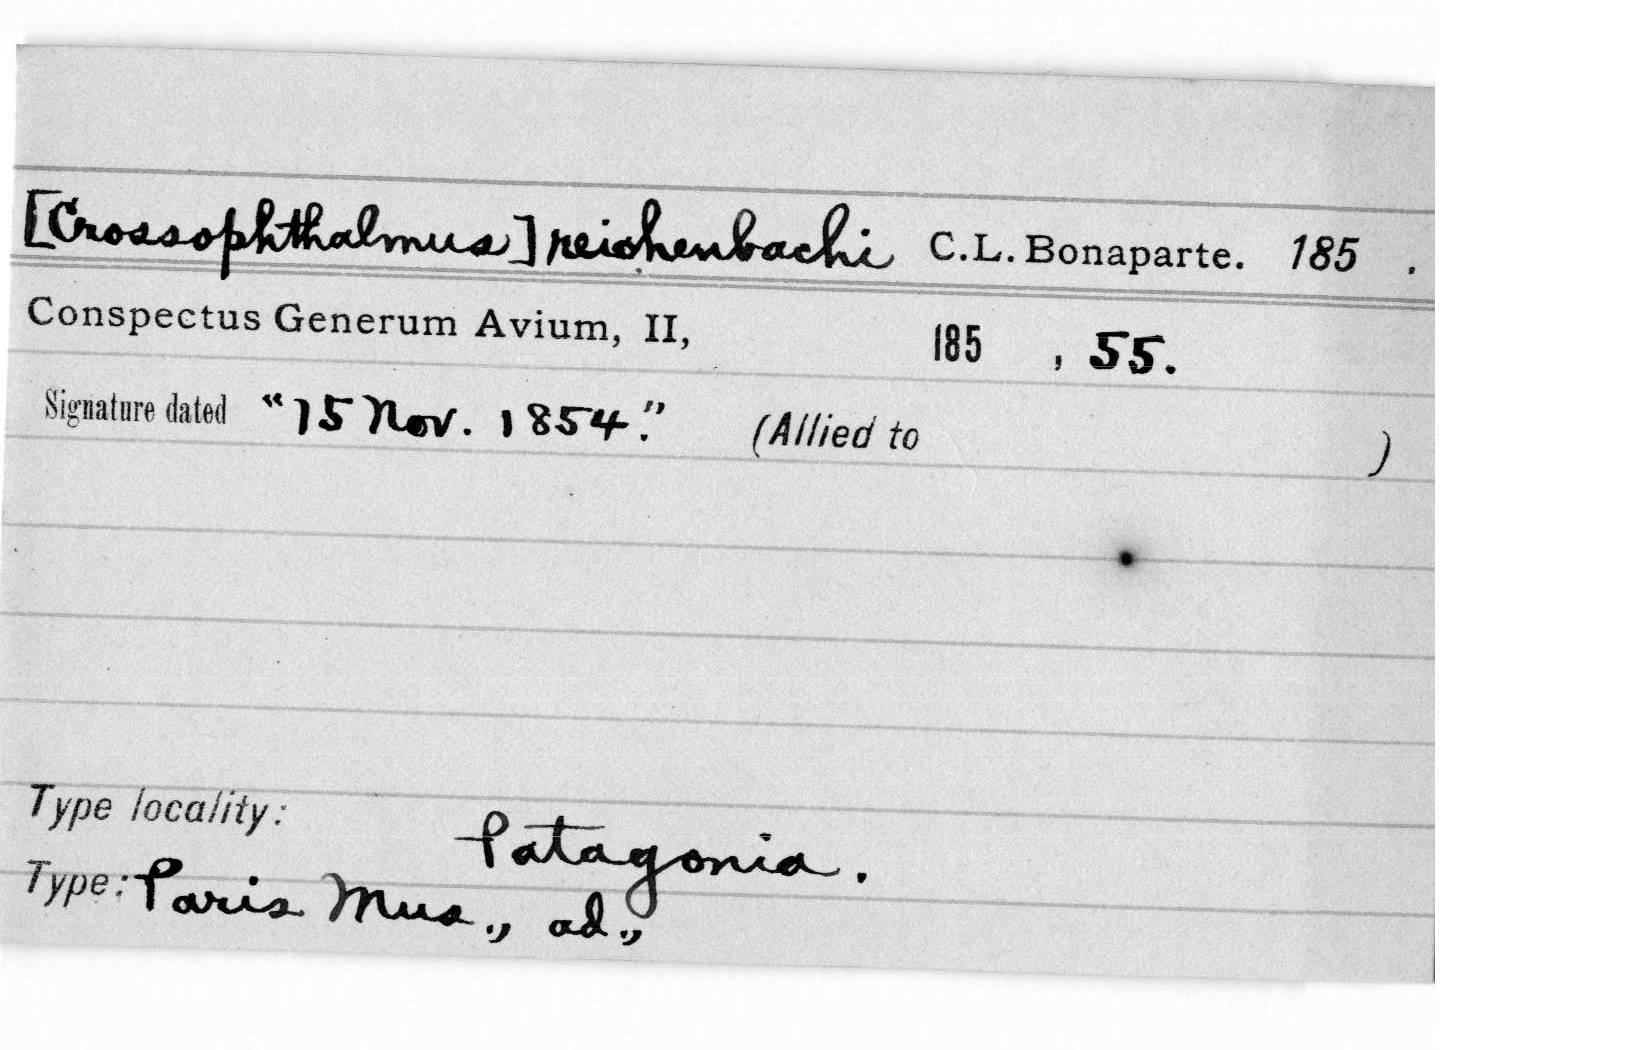 [Crossophthalmus] reichenbachi C.L. Bonaparte. 185 .
Conspectus Generum Avium, II, 185 , 55.
Signature dated "15 Nov. 1854." (Allied to )
Type locality: Patagonia.
Type: Paris Mus., ad.,